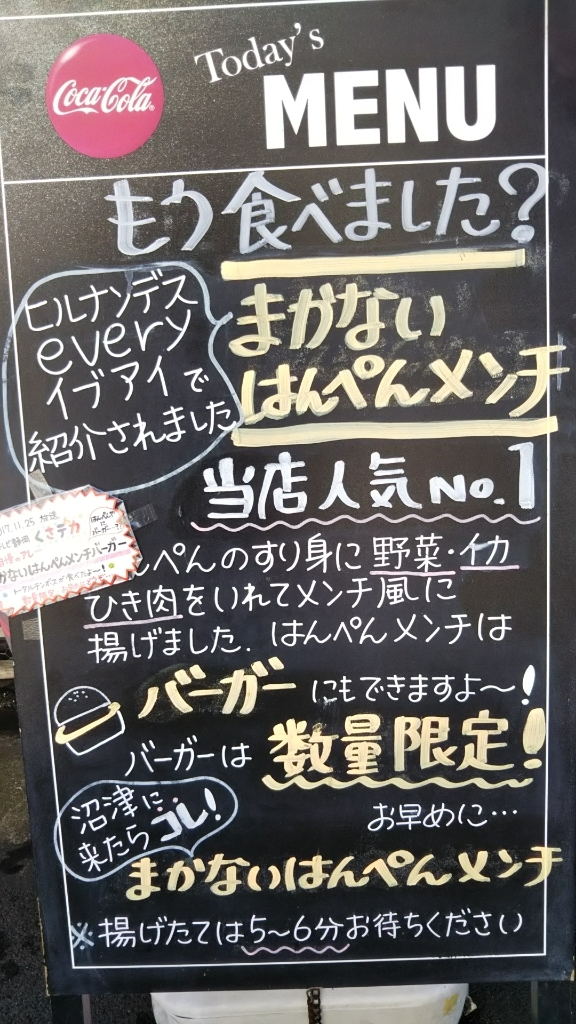 Coca-Cola
Today's
MENU
もう食べました?
ヒルナンデス
every
イブアイで
紹介されました
まかない
はんぺんメンチ
当店人気No.1
17.11.25 放送
くさデカ
かないはんぺんメンチバーガー
んぺんのすり身に野菜・イカ
ひき肉をいれてメンチ風に
揚げました. はんぺんメンチは
バーガーにもできますよ〜!
バーガーは数量限定!
お早めに…
沼津に
来たらコレ!
まかないはんぺんメンチ
※揚げたては5〜6分お待ちください